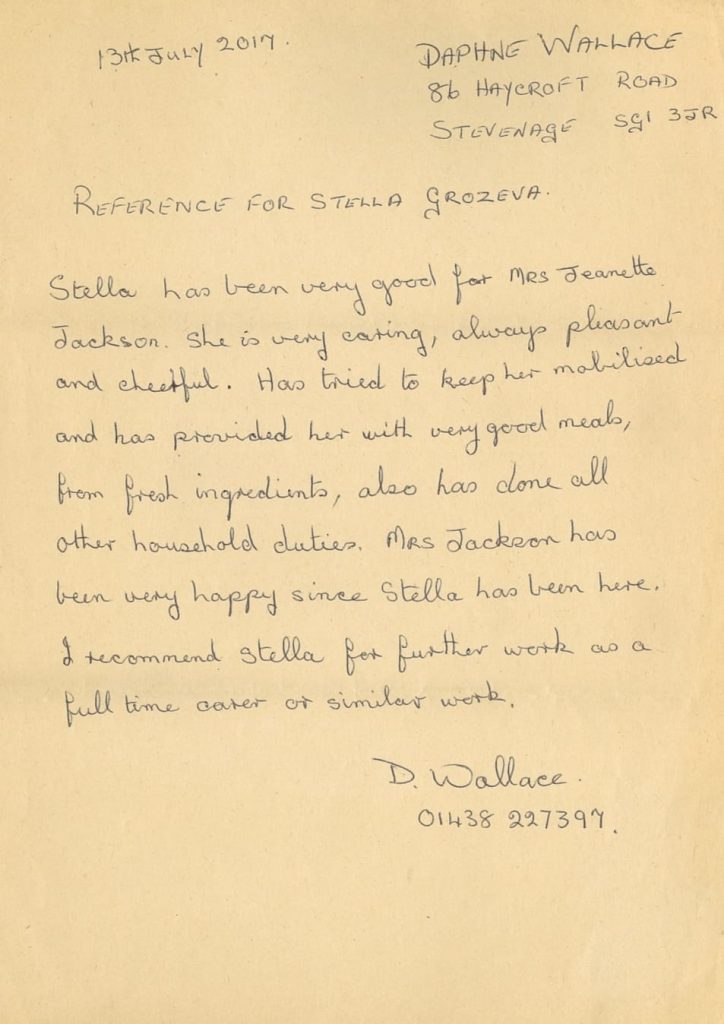 13th July 2017.
DAPHNE WALLACE
86 HAYCROFT ROAD
STEVENAGE SG1 3JR
REFERENCE FOR STELLA GROZEVA.
Stella has been very good for Mrs Jeanette
Jackson. She is very caring, always pleasant
and cheerful. Has tried to keep her mobilised
and has provided her with very good meals,
from fresh ingredients, also has done all
other household duties. Mrs Jackson has
been very happy since Stella has been here.
I recommend Stella for further work as a
full time carer or similar work.
D. Wallace.
01438 227397.